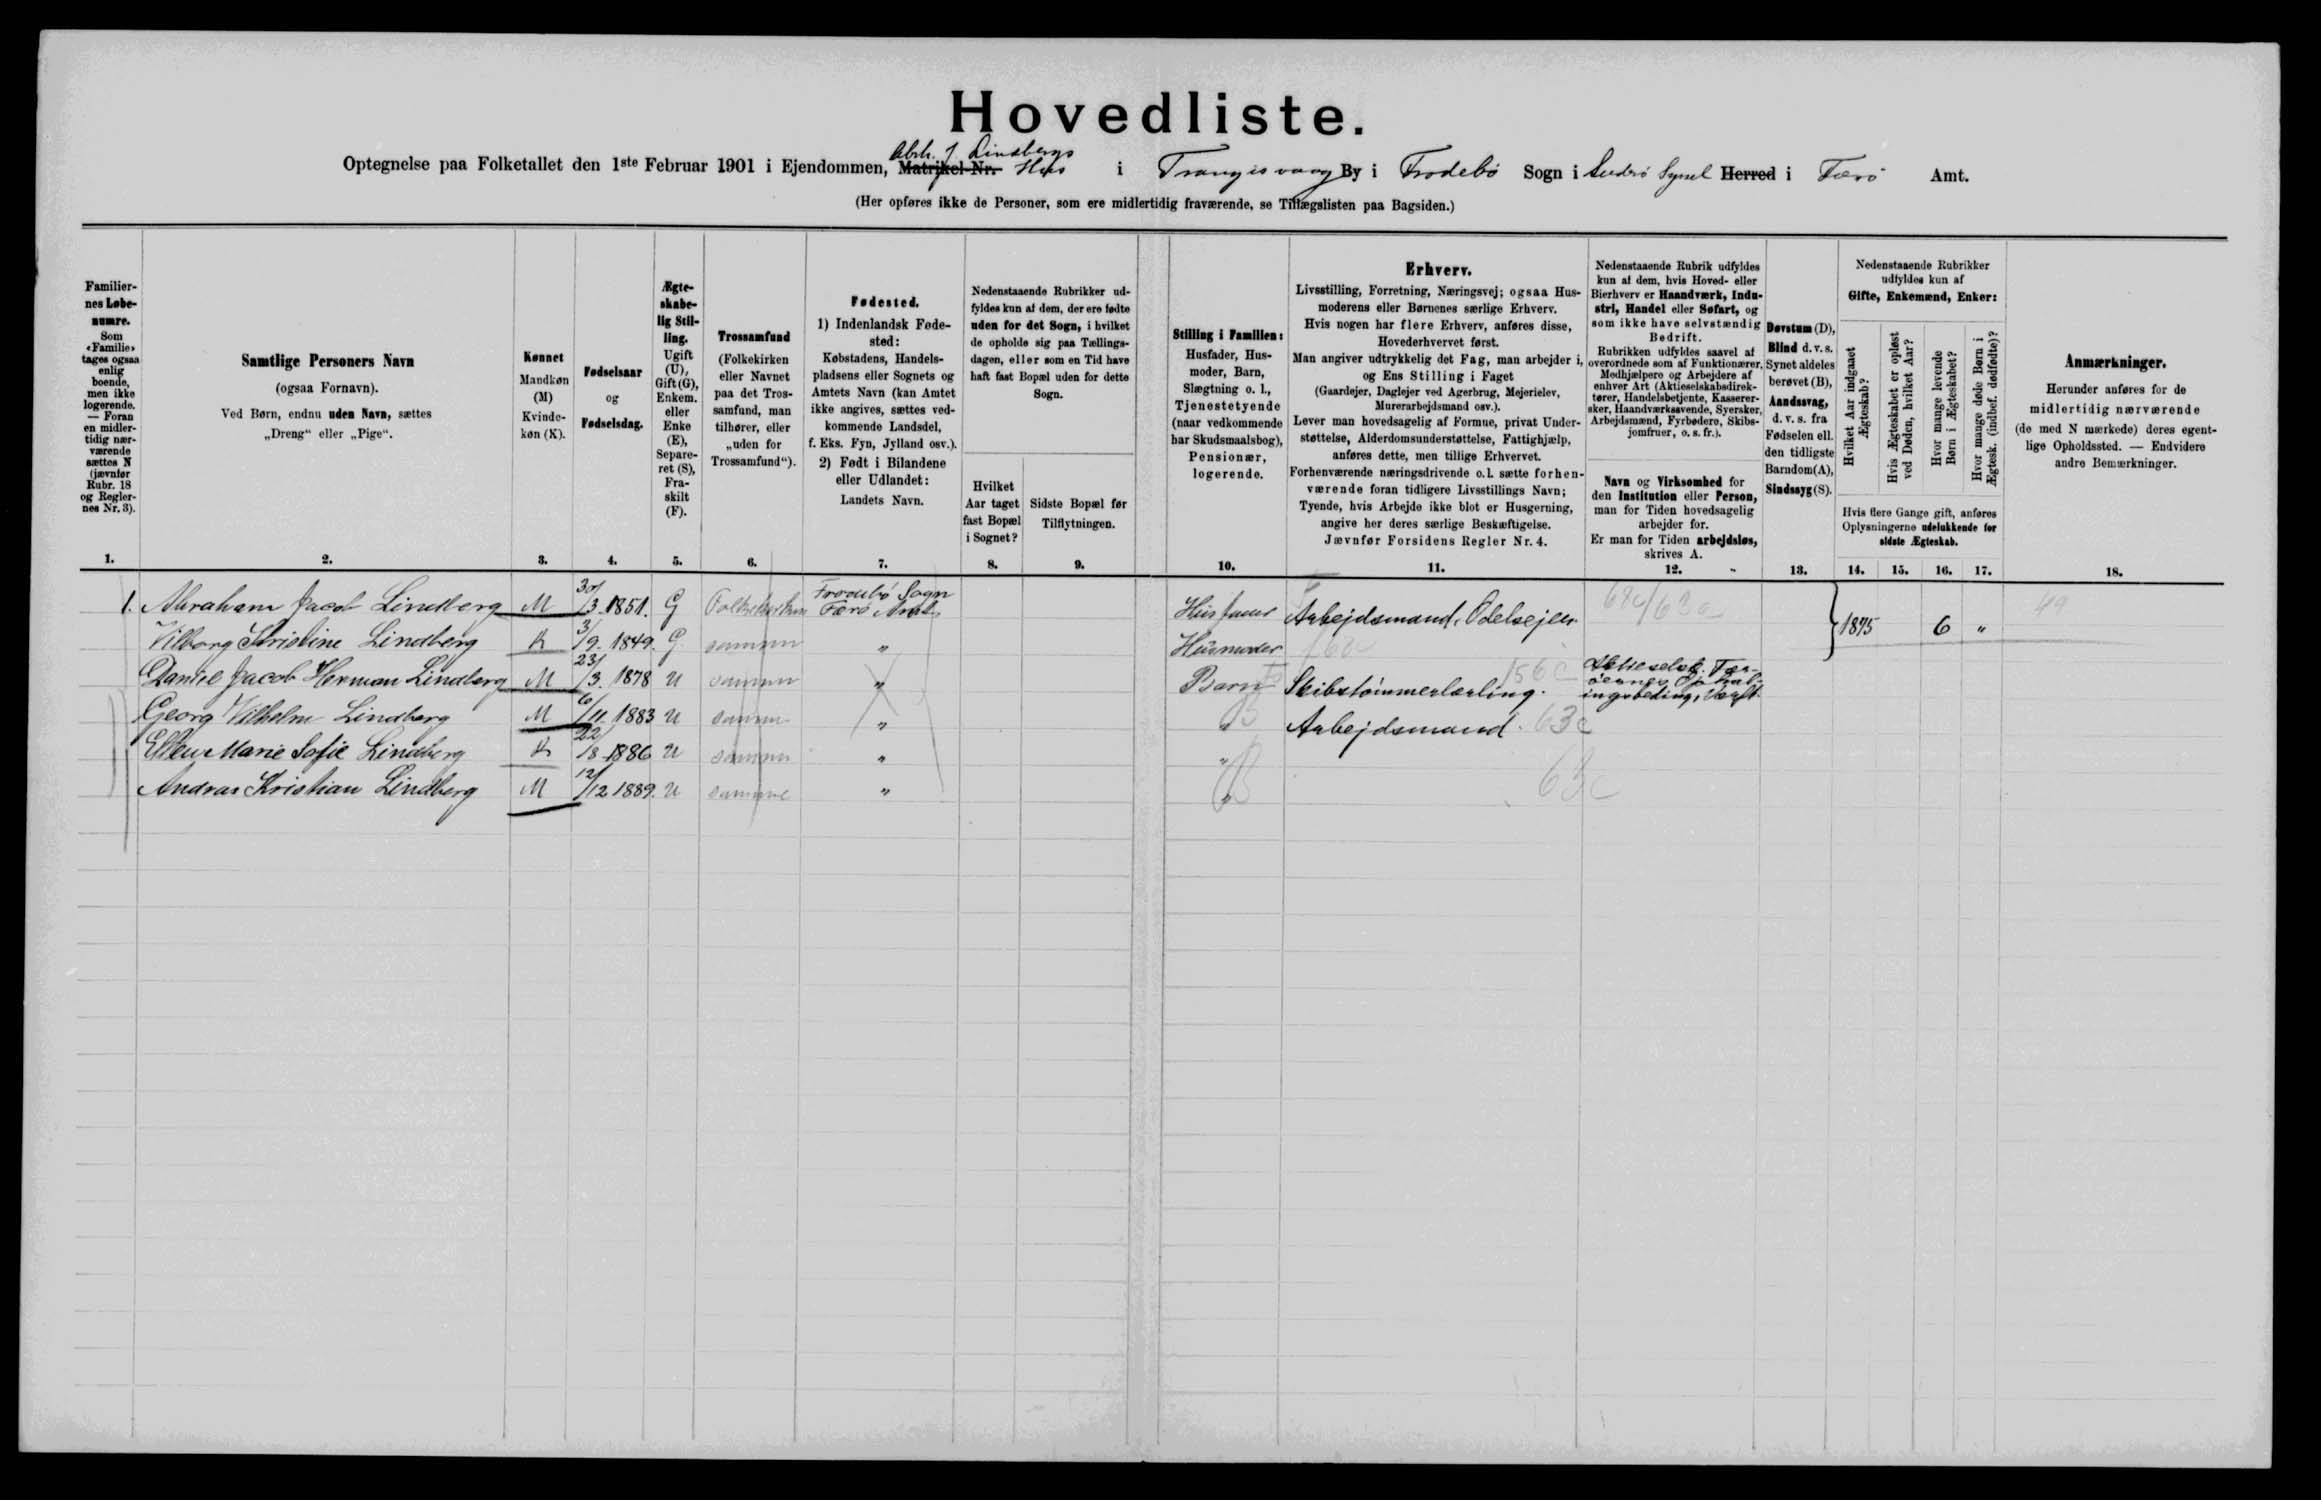 Hovedliste.
Optegnelse paa Folketallet den 1ste Februar 1901 i Ejendommen, Matrikel-Nr. Abrh. J. Lindbergs Hus i Trangisvaag By i Frodebö Sogn i Suderö Syssel Herred i Færö Amt.
(Her opføres ikke de Personer, som ere midlertidig fraværende, se Tillægslisten paa Bagsiden.)
Familiernes Løbenumre.
Som «Familie» tages ogsaa enlig boende, men ikke logerende. — Foran en midlertidig nærværende sættes N (jævnfør Rubr. 18 og Reglernes Nr. 3).
1.
Samtlige Personers Navn
(ogsaa Fornavn).
Ved Børn, endnu uden Navn, sættes
„Dreng“ eller „Pige“.
2.
Kønnet
Mandkøn (M)
Kvindekøn (K).
3.
Fødselsaar
og
Fødselsdag.
4.
Ægteskabelig Stilling.
Ugift (U), Gift (G), Enkem. eller Enke (E), Separeret (S), Fraskilt (F).
5.
Trossamfund
(Folkekirken eller Navnet paa det Trossamfund, man tilhører, eller „uden for Trossamfund“).
6.
Fødested.
1) Indenlandsk Fødested:
Købstadens, Handelspladsens eller Sognets og Amtets Navn (kan Amtet ikke angives, sættes vedkommende Landsdel, f. Eks. Fyn, Jylland osv.).
2) Født i Bilandene eller Udlandet:
Landets Navn.
7.
Nedenstaaende Rubrikker udfyldes kun af dem, der ere fødte uden for det Sogn, i hvilket de opholde sig paa Tællingsdagen, eller som en Tid have haft fast Bopæl uden for dette Sogn.
Hvilket Aar taget fast Bopæl i Sognet?
8.
Sidste Bopæl før Tilflytningen.
9.
Stilling i Familien:
Husfader, Husmoder, Barn, Slægtning o. l., Tjenestetyende (naar vedkommende har Skudsmaalsbog), Pensionær, logerende.
10.
Erhverv.
Livsstilling, Forretning, Næringsvej; ogsaa Husmoderens eller Børnenes særlige Erhverv.
Hvis nogen har flere Erhverv, anføres disse, Hovederhvervet først.
Man angiver udtrykkelig det Fag, man arbejder i, og Ens Stilling i Faget
(Gaardejer, Daglejer ved Agerbrug, Mejerielev, Murerarbejdsmand osv.).
Lever man hovedsagelig af Formue, privat Understøttelse, Alderdomsunderstøttelse, Fattighjælp, anføres dette, men tillige Erhvervet.
Forhenværende næringsdrivende o.l. sætte forhenværende foran tidligere Livsstillings Navn;
Tyende, hvis Arbejde ikke blot er Husgerning, angive her deres særlige Beskæftigelse.
Jævnfør Forsidens Regler Nr. 4.
11.
Nedenstaaende Rubrik udfyldes kun af dem, hvis Hoved- eller Bierhverv er Haandværk, Industri, Handel eller Søfart, og som ikke have selvstændig Bedrift.
Rubrikken udfyldes saavel af overordnede som af Funktionærer, Medhjælpere og Arbejdere af enhver Art (Aktieselskabsdirektører, Handelsbetjente, Kasserersker, Haandværkssvende, Syersker, Arbejdsmænd, Fyrbødere, Skibsjomfruer, o. s. fr.).
Navn og Virksomhed for den Institution eller Person, man for Tiden hovedsagelig arbejder for.
Er man for Tiden arbejdsløs, skrives A.
12.
Døvstum (D), Blind d. v. s. Synet aldeles berøvet (B), Aandssvag, d. v. s. fra Fødselen ell. den tidligste Barndom (A), Sindssyg (S).
13.
Nedenstaaende Rubrikker udfyldes kun af
Gifte, Enkemænd, Enker:
Hvilket Aar indgaaet Ægteskab?
Hvis Ægteskabet er opløst ved Døden, hvilket Aar?
Hvor mange levende Børn i Ægteskabet?
Hvor mange døde Børn i Ægtesk. (indbef. dødfødte)?
Hvis flere Gange gift, anføres Oplysningerne udelukkende for sidste Ægteskab.
14. 15. 16. 17.
Anmærkninger.
Herunder anføres for de midlertidig nærværende (de med N mærkede) deres egentlige Opholdssted. — Endvidere andre Bemærkninger.
18.
1. Abraham Jacob Lindberg M 30/3 1851. G Folkekirken Frodebö Sogn Færö Amt. Husfader Arbejdsmand, Odelsejer 1875 6 „ 49
Vilborg Kristine Lindberg K 3/9. 1849. G. samme „ Husmoder
Daniel Jacob Herman Lindberg M 23/3. 1878 U samme „ Barn Skibstömmerlærling. 156 c
Georg Vilhelm Lindberg M 6/11 1883 U samme „ „ Arbejdsmand. 63c
Ellen Marie Sofie Lindberg K 22/8 1886 U samme „ „
Andras Kristian Lindberg M 12/12 1889. U samme „ „ 63c